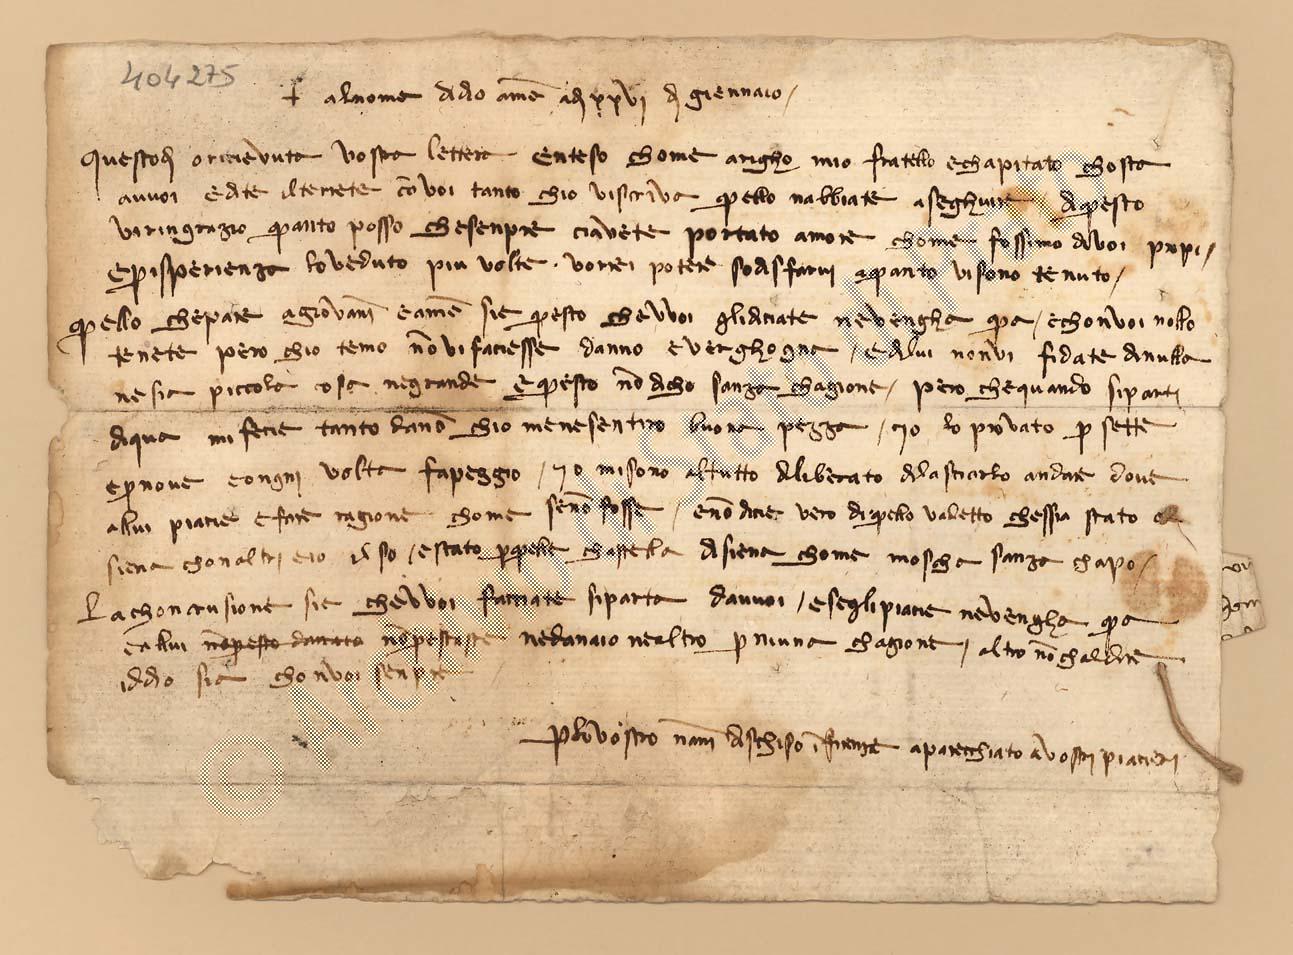 404275
† al nome didio amē adi xxvi di giennaio /
Questo di oricievuta vostra lettera enteso chome arigho mio fratello e chapitato chosta
avvoi e dite il terrete cō voi tanto chio vi scriva quello nabbiate aseghuire di questo
vi ringrazio quanto posso che senpre ciavete portato amore chome fossimo di voi propi /
e p isperienza lo veduto piu volte . vorrei potere sodisfarvi aquanto vi sono tenuto /
quello che pare a giovanī e a mē sie questo che vvoi gli diciate ne vengha qua / e chon voi nollo
tenete pero chio temo nō vi faciesse danno e verghogna / e di lui non vi fidate di nulla
ne sia piccola cosa ne grande e questo nō dicho sanza chagione / pero che quando si parti
di qua mi fecie tanto dannō chio me ne sentiro buona pezza / io lo provato p sette
e p nove e ongni volta fa peggio / io mi sono al tutto diliberato di lasciarlo andare dove
allui piacie e fare ragione chome se nō fosse / e nō dicie vero di quello valetto chessia stato a
siena chon altri e io il so / e stato p quelle chastella di siena chome moscha sanza chapo /
La chonchrusione sie che vvoi facciate si parta da vvoi / e se gli piacie ne vengha qua
e allui nō prestaste ne danaio ne altro p niuna chagione / altro nō chal dire
iddio sia chon voi senpre
p lo vostro nāni daschiso ī firenze aparecchiato a vostri piacieri
© Archivio di Stato